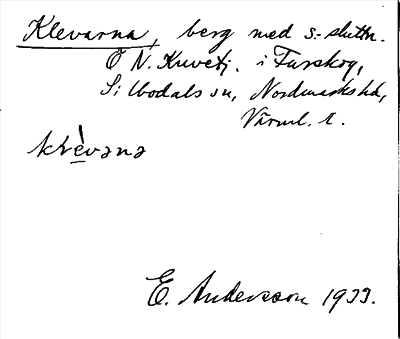 Klevarna, berg med s.-sluttn.
Ö N. Kuvetj. i Farskog,
Silbodals sn, Nordmarks hd,
Värml. l.
klèvana
E. Andersson 1933.